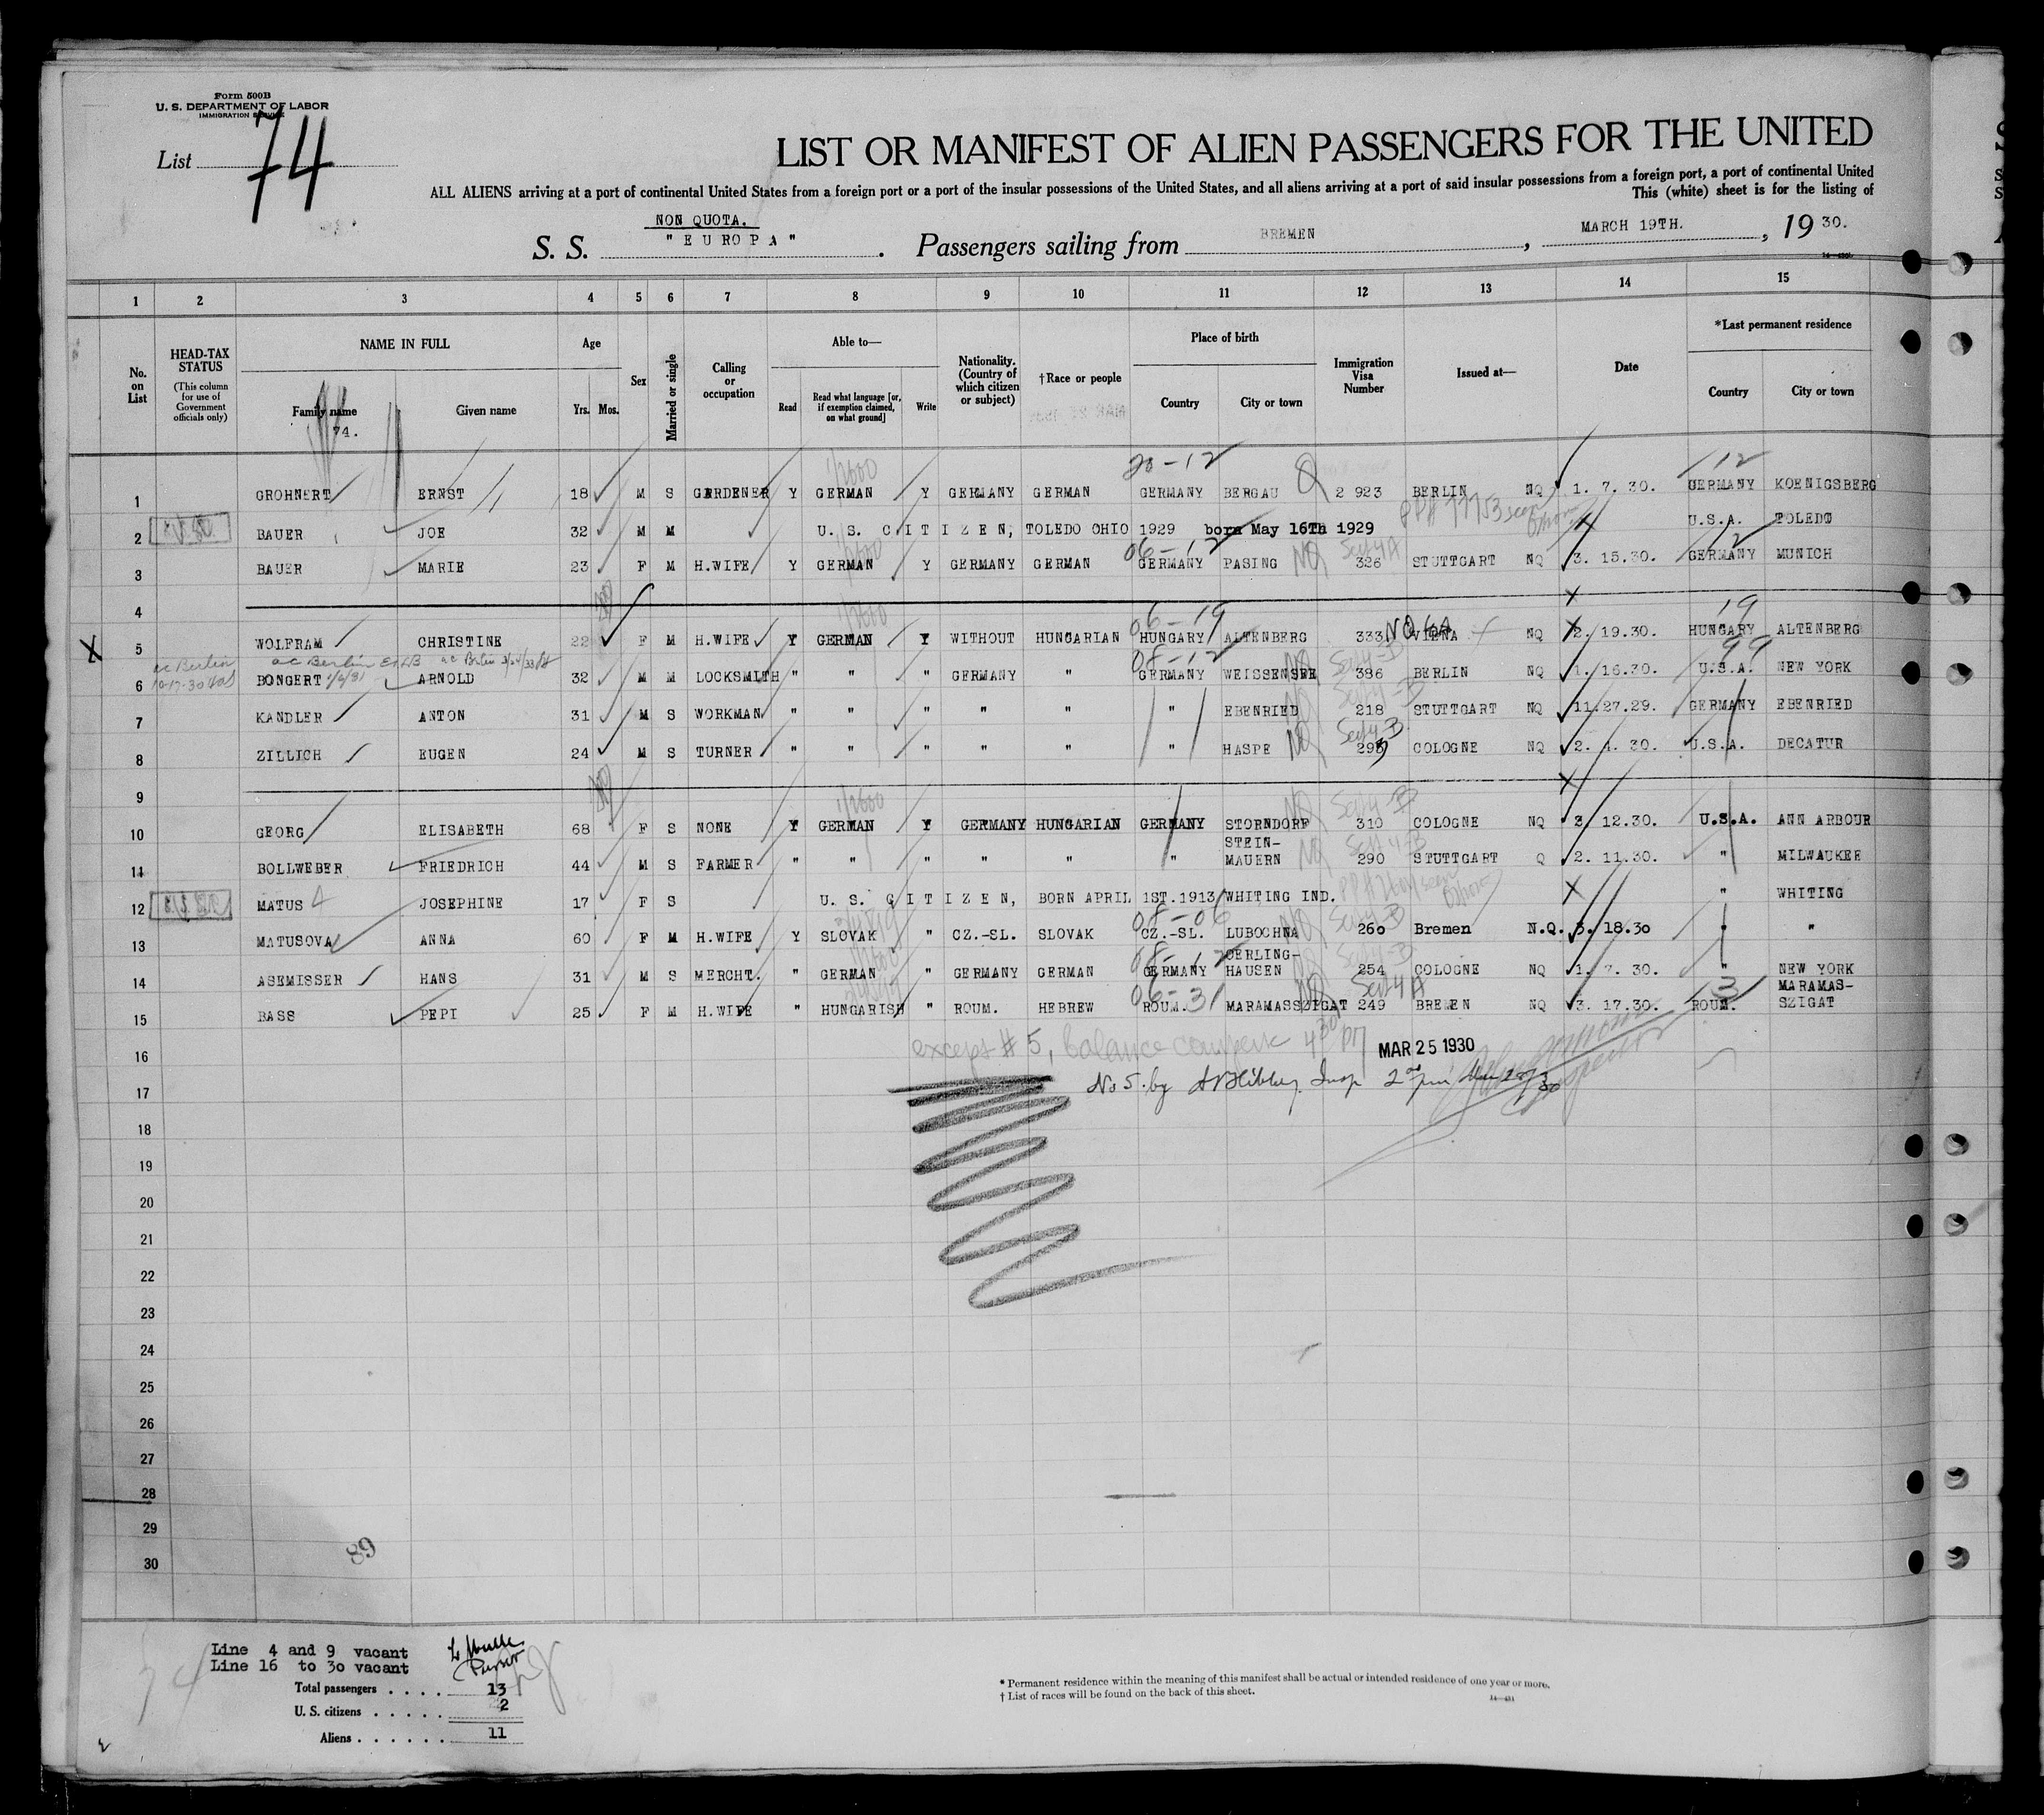 Form 500B
U. S. DEPARTMENT OF LABOR
IMMIGRATION SERVICE
List 74
LIST OR MANIFEST OF ALIEN PASSENGERS FOR THE UNITED
ALL ALIENS arriving at a port of continental United States from a foreign port or a port of the insular possessions of the United States, and all aliens arriving at a port of said insular possessions from a foreign port, a port of continental United
This (white) sheet is for the listing of
NON QUOTA.
S. S. "EUROPA". Passengers sailing from BREMEN, MARCH 19TH., 19 30.
1 2 3 4 5 6 7 8 9 10 11 12 13 14 15
No. on List
HEAD-TAX STATUS (This column for use of Government officials only)
NAME IN FULL
Family name
74.
Given name
Age
Yrs. Mos.
Sex
Married or single
Calling or occupation
Able to—
Read
Read what language [or, if exemption claimed, on what ground]
Write
Nationality. (Country of which citizen or subject)
†Race or people
Place of birth
Country
City or town
Immigration Visa Number
Issued at—
Date
*Last permanent residence
Country
City or town
20-12 12
1 GROHNERT ERNST 18 M S GARDENER Y GERMAN Y GERMANY GERMAN GERMANY BERGAU 2 923 BERLIN NQ 1. 7. 30. GERMANY KOENIGSBERG
2 BAUER JOE 32 M M U. S. CITIZEN, TOLEDO OHIO 1929 born May 16Th 1929 U.S.A. TOLEDO
06-12 NQ Sect4A 12
3 BAUER MARIE 23 F M H.WIFE Y GERMAN Y GERMANY GERMAN GERMANY PASING 326 STUTTGART NQ 3. 15.30. GERMANY MUNICH
4
06-19 NQ 4A 19
X 5 WOLFRAM CHRISTINE 22 F M H.WIFE Y GERMAN Y WITHOUT HUNGARIAN HUNGARY ALTENBERG 333 VIENA NQ 2. 19.30. HUNGARY ALTENBERG
08-12 NQ Sect4-B 99
6 BONGERT ARNOLD 32 M M LOCKSMITH " " " GERMANY " GERMANY WEISSENSEE 386 BERLIN NQ 1. 16.30. U.S.A. NEW YORK
7 KANDLER ANTON 31 M S WORKMAN " " " " " " EBENRIED 218 STUTTGART NQ 11.27.29. GERMANY EBENRIED
8 ZILLICH EUGEN 24 M S TURNER " " " " " " HASPE 295 COLOGNE NQ 2. 4. 30. U.S.A. DECATUR
9
10 GEORG ELISABETH 68 F S NONE Y GERMAN Y GERMANY HUNGARIAN GERMANY STORNDORF 310 COLOGNE NQ 3 12.30. U.S.A. ANN ARBOUR
11 BOLLWEBER FRIEDRICH 44 M S FARMER " " " " " " STEIN-MAUERN 290 STUTTGART Q 2. 11.30. " MILWAUKEE
12 MATUS JOSEPHINE 17 F S U. S. CITIZEN, BORN APRIL 1ST.1913 WHITING IND. " WHITING
08-06
13 MATUSOVA ANNA 60 F M H.WIFE Y SLOVAK " CZ.-SL. SLOVAK CZ.-SL. LUBOCHNA 260 Bremen N.Q. 3. 18.30 " "
08-12
14 ASEMISSER HANS 31 M S MERCHT. " GERMAN " GERMANY GERMAN GERMANY OERLING-HAUSEN 254 COLOGNE NQ 1. 7. 30. " NEW YORK
06-31 NQ Sect4A 3
15 BASS PEPI 25 F M H.WIFE " HUNGARISH " ROUM. HEBREW ROUM. MARAMASSZIGAT 249 BREMEN NQ 3. 17.30. ROUM. MARAMAS-SZIGAT
16 except # 5, balance 430 PM MAR 25 1930
17 No 5. by Insp
18
19
20
21
22
23
24
25
26
27
28
29
30
89
Line 4 and 9 vacant
Line 16 to 30 vacant
Total passengers . . . . 13
U. S. citizens . . . . . 2
Aliens . . . . . . 11
* Permanent residence within the meaning of this manifest shall be actual or intended residence of one year or more.
† List of races will be found on the back of this sheet.